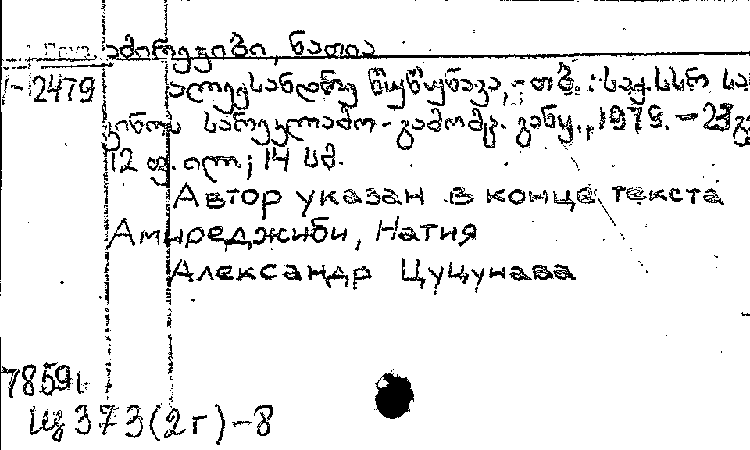 ამირეჯიბი, ნათია
1-2479 ალექსანდრე წუწუნავა, -თბ. : საქ.სსრ სა
კინოს სარეკლამო-გამომც. განყ., 1979. - 23გვ
12 ფ. ილ; 14 სმ.
Автор указан в конце текста
Амиреджиби, Натия
Александр Цуцунава
7859
Щ373(2Г)-8